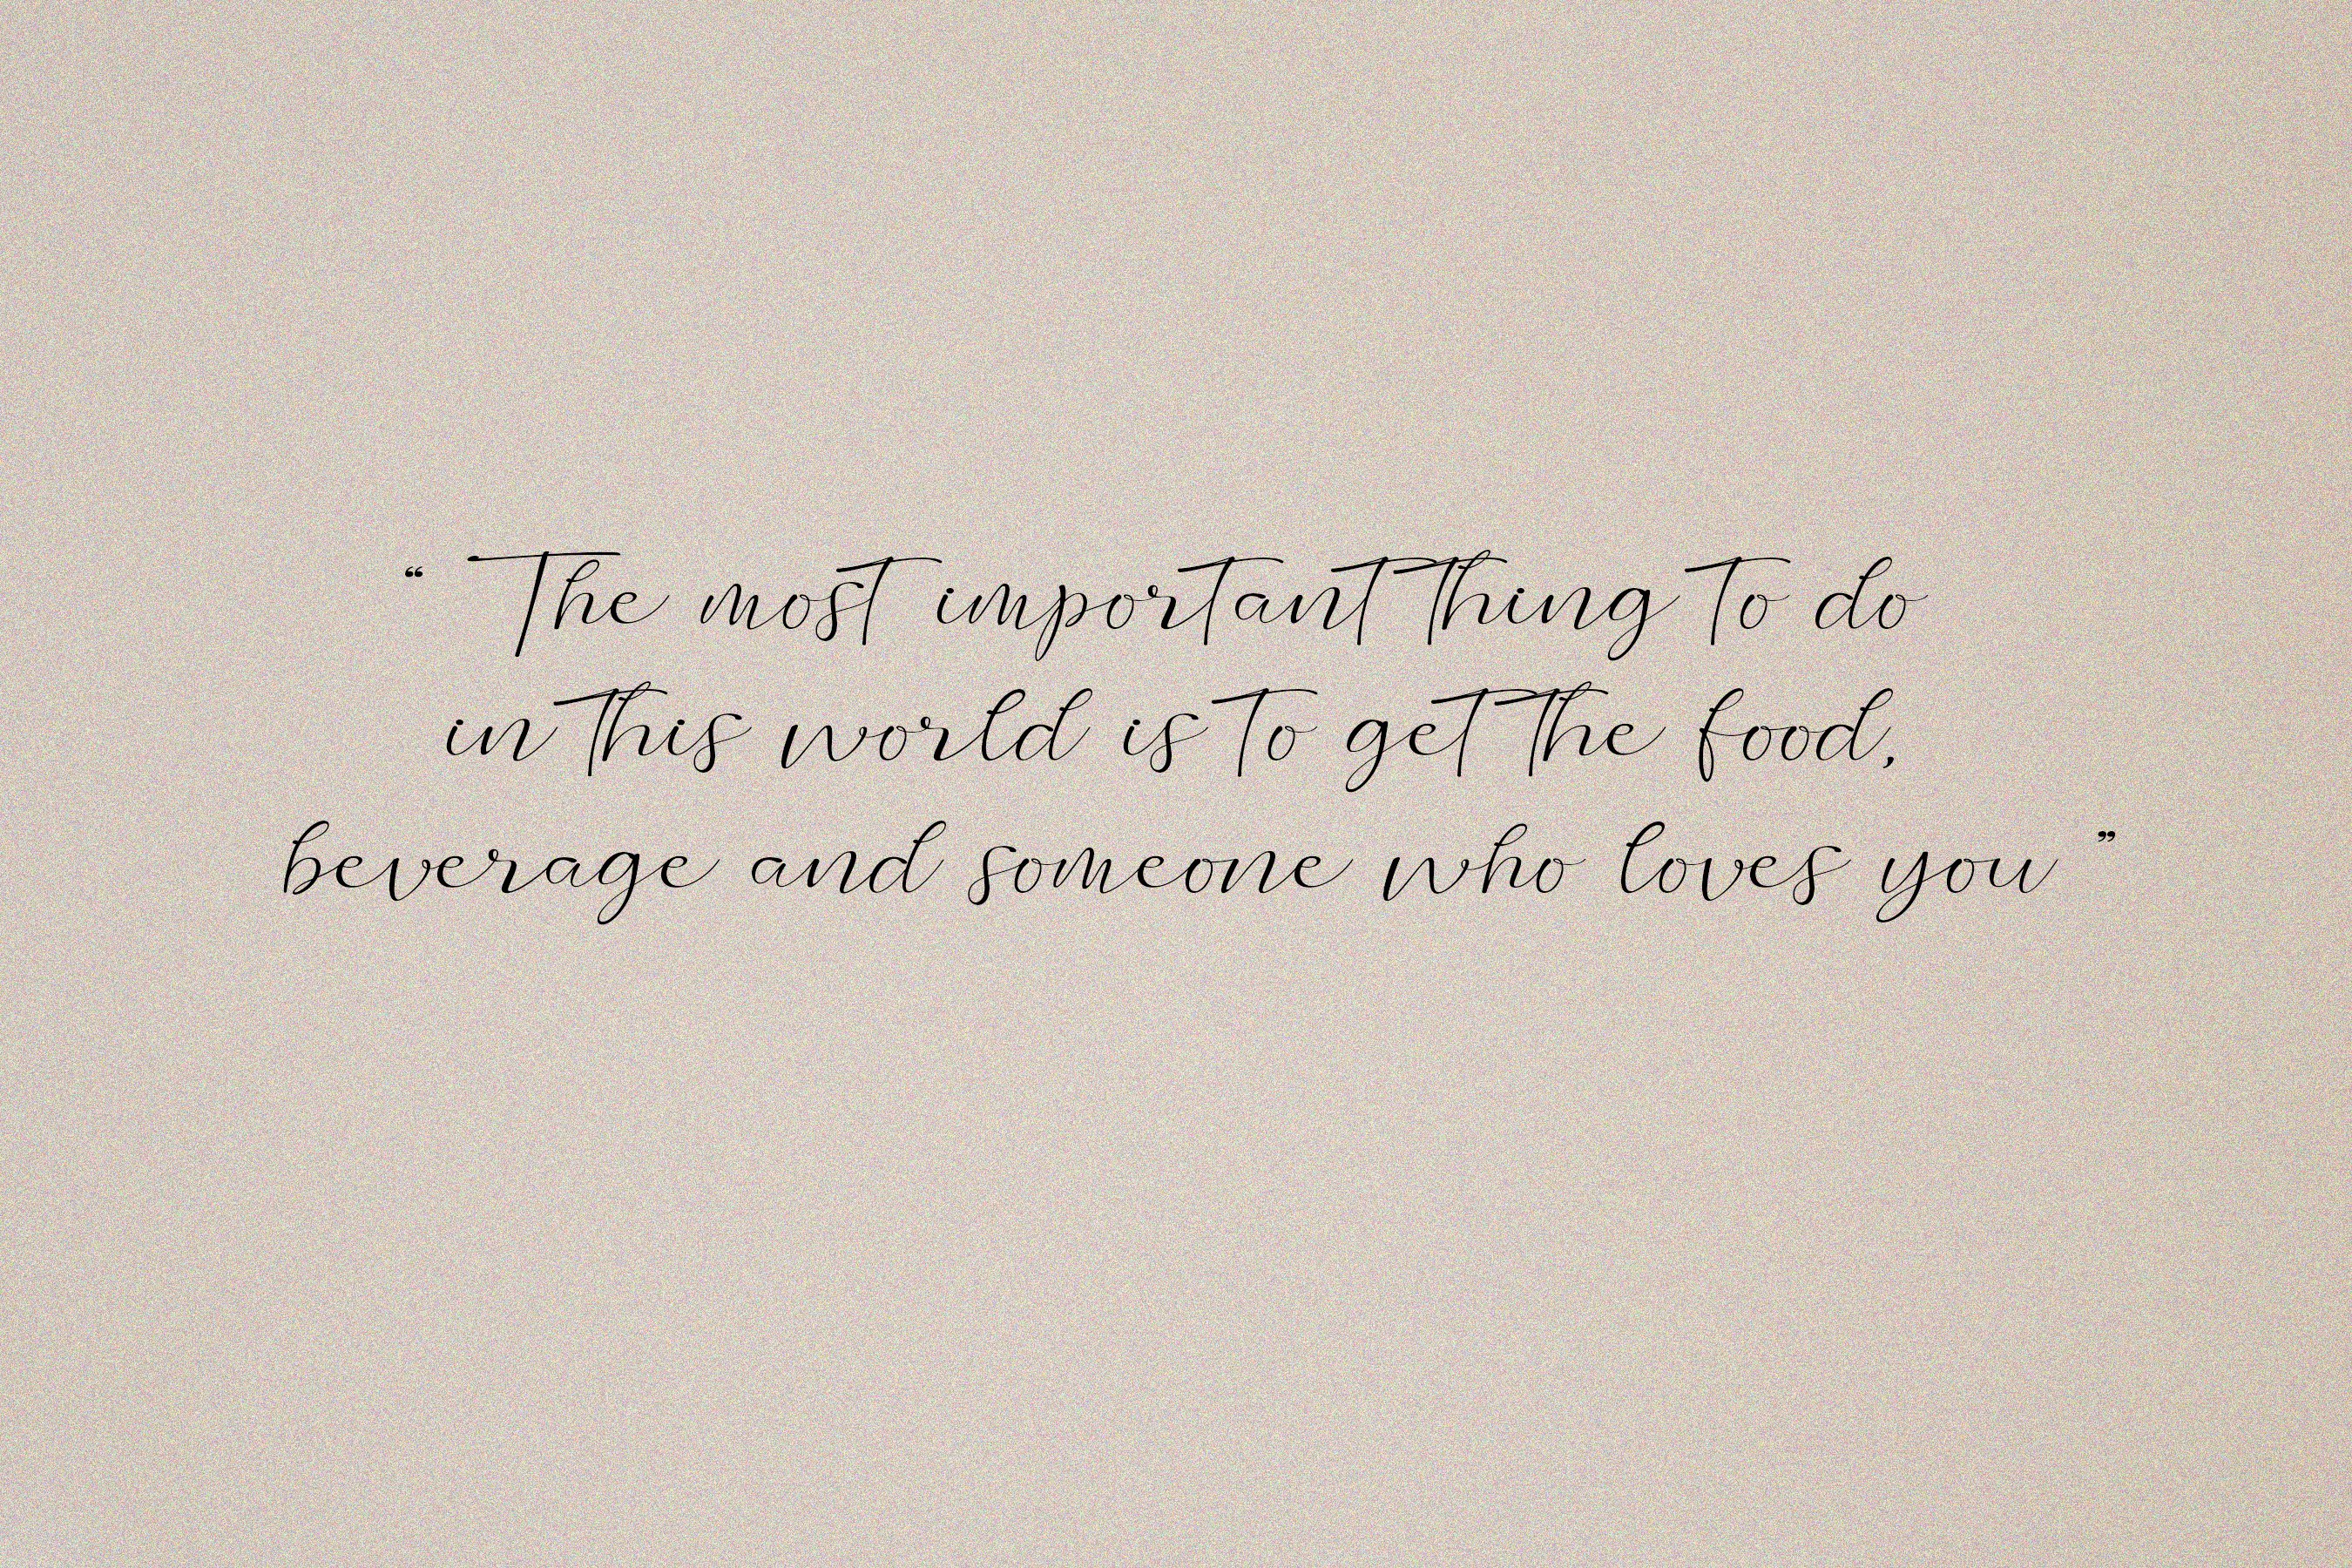 “ The most important thing to do
in this world is to get the food,
beverage and someone who loves you ”